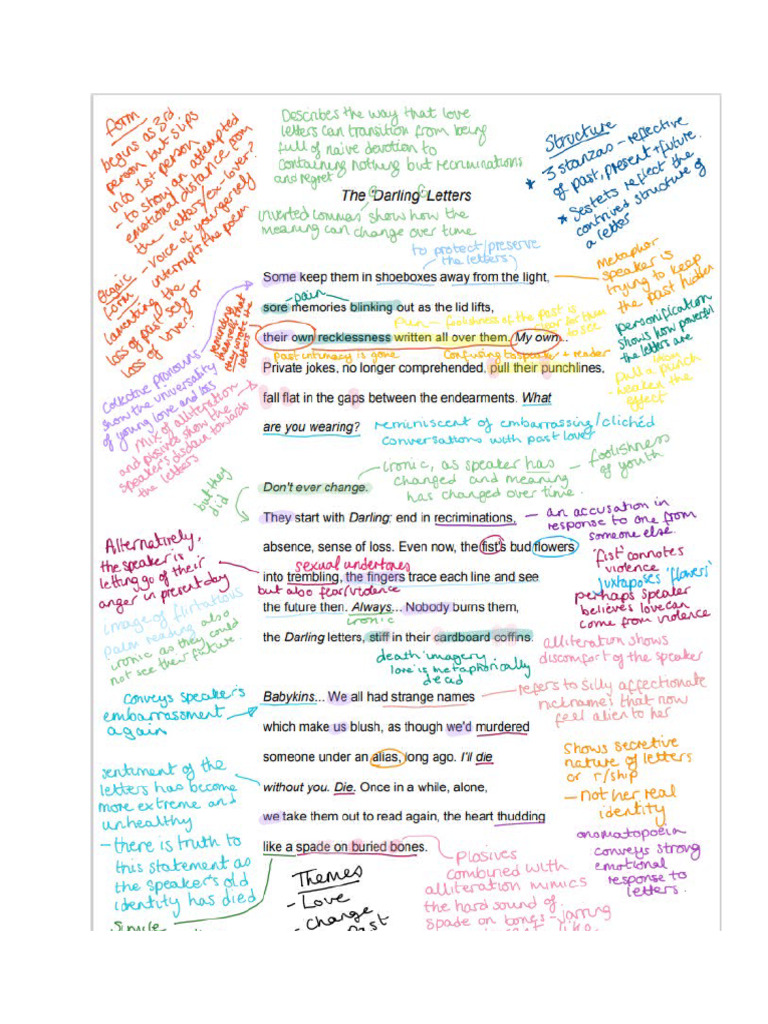 Form
begins as 3rd
person but slips
into 1st person
- to show an attempted
emotional distance from
the letters/ex-lover?
- voice of younger self
interrupts the poem
Elegaic
form
lamenting the
loss of past self or
loss of love?
Describes the way that love
letters can transition from being
full of naive devotion to
containing nothing but recriminations
and regret
Structure
* 3 stanzas - reflective
of past, present + future.
* Sestets reflect the
contrived structure of
a letter
The 'Darling' Letters
inverted commas show how the
meaning can change over time
to protect/preserve
the letters)
Some keep them in shoeboxes away from the light,
metaphor
speaker is
trying to keep
the past hidden
- pain
sore memories blinking out as the lid lifts,
Pun - foolishness of the past is
clear for them
to see
personification
shows how powerful
the letters are
reminding
themself that
they wrote the
letters
their own recklessness written all over them. My own...
past intimacy is gone
Confusing to speaker + reader
Private jokes, no longer comprehended, pull their punchlines,
pull a punch
- weaken the
effect
Collective pronouns
show the universality
of young love and loss
fall flat in the gaps between the endearments. What
Mix of alliteration
and plosives show the
speaker's disdain towards
the letters
are you wearing?
reminiscent of embarrassing/clichéd
conversations with past lover
but they
did
Don't ever change.
ironic, as speaker has
changed and meaning
has changed over time.
- foolishness
of youth
They start with Darling; end in recriminations,
- an accusation in
response to one from
someone else.
absence, sense of loss. Even now, the fist's bud flowers
'fist' connotes
violence
juxtaposes 'flowers'
perhaps speaker
believes love can
come from violence
Alternatively,
the speaker is
letting go of their
anger in present day
sexual undertones
into trembling, the fingers trace each line and see
but also fear/violence
image of flirtatious
palm reading also
ironic as they could
not see their future.
the future then. Always... Nobody burns them,
ironic
the Darling letters, stiff in their cardboard coffins.
death imagery
love is metaphorically
dead
alliteration shows
discomfort of the speaker
Conveys speaker's
embarrassment
again
Babykins... We all had strange names
- refers to silly affectionate
nicknames that now
feel alien to her
which make us blush, as though we'd murdered
someone under an alias, long ago. I'll die
Shows secretive
nature of letters
or r/ship
- not her real
identity
sentiment of the
letters has become
more extreme and
unhealthy
- there is truth to
this statement as
the speaker's old
identity has died
without you. Die. Once in a while, alone,
we take them out to read again, the heart thudding
onomatopoeia
conveys strong
emotional
response to
letters.
like a spade on buried bones.
- Plosives
combined with
alliteration mimics
the hard sound of
spade on bones - jarring
Themes
- Love
- change